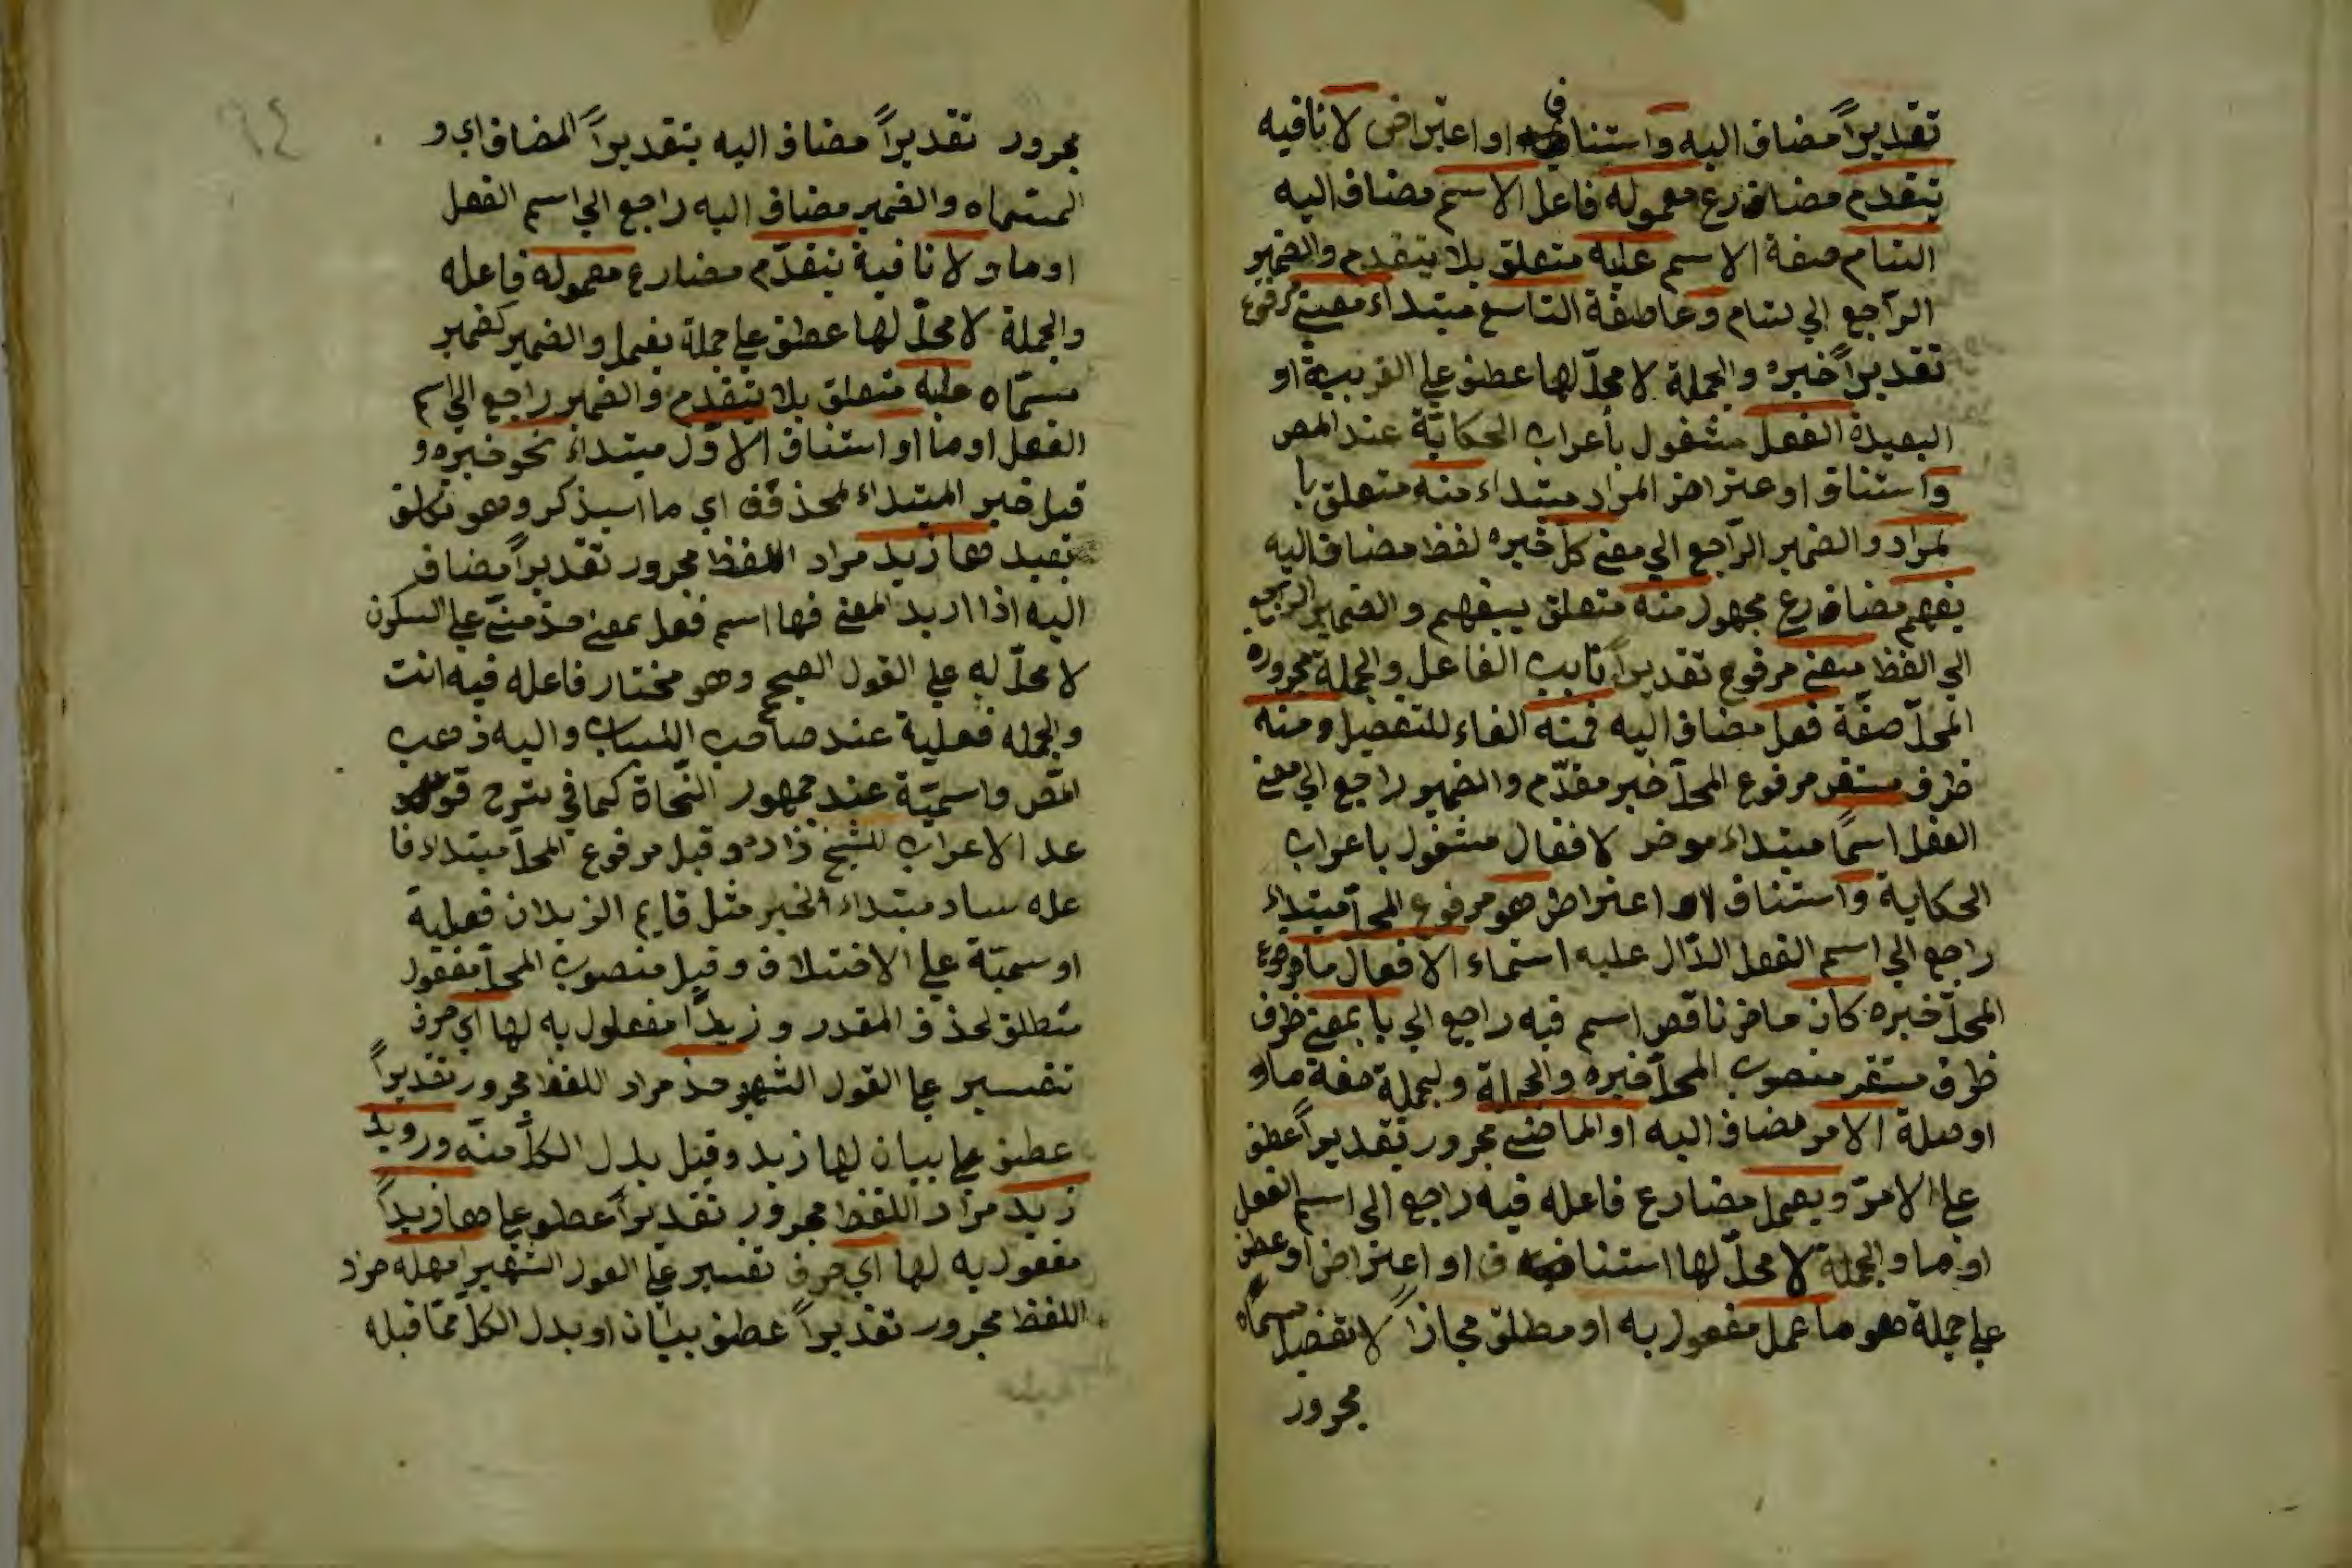 تقديراً مضاف اليه واستناف او اعتراض لا نافيه
يتقدم مضارع معموله فاعل الاسم مضاف اليه
التام صفة الاسم عليه متعلق بلا يتقدم والضمير
الراجع الي لتام وعاطفة التاسع مبتداء معني مرفوع
تقديراً خبره والجملة لا محلّ لها عطف علي القريبة او
البعيدة الفعل مشغول باعراب الحكاية عند المص
واستناف او عتراض المراد مبتداء منه متعلق با
لمراد والضمير الراجع الي معني كل خبره لفظ مضاف اليه
يفهم مضارع مجهول منه متعلق بيفهم والضمير الراجع
الي الفظ معني مرفوع تقديراً نايب الفاعل والجملة مجروره
المحلّ صفة فعل مضاف اليه فمنه الفاء للتفصيل ومنه
ظرف مستقر مرفوع المحلّ خبر مقدّم والضمير راجع الي معني
الفعل اسما مبتداء موخر لافعال مشغول باعراب
الحكاية واستناف او اعتراض هو مرفوع المحلّ مبتداء
راجع الي اسم الفعل الدّال عليه اسماء الافعال ما مرفوع
المحلّ خبره كان ماض ناقص اسم فيه راجع الي با بمعني ظرف
ظرف مستقر منصوب المحلّ خبره والجملة ولجملة صفة ما او
او صلة الامر مضاف اليه او الماضي مجرور تقديراً عطف
علي الامر ويعمل مضارع فاعله فيه راجع الي اسم الفعل
او ما والجملة لا محلّ لها استناف او اعتراض او عطف
علي جملة هو ما عمل مفعول به او مطلق مجازاً لا تفصيل مسمّاه
مجرور
مجرور تقديراً مضاف اليه بتقديراً المضاف اي و
لمسماه والضمير مضاف اليه راجع الي اسم الفعل
او ما و لا نافية يتقدّم مضارع معموله فاعله
والجملة لا محلّ لها عطف علي جملة يعمل والضمير كضمير
مسمّاه عليه متعلق بلا يتقدم والضمير راجع الي اسم
الفعل او ما او استناف الاوّل مبتداء نحو خبره و
قبل خبر المبتداء لمحذوف اي ما اسيذكر وهو تكلف
بعيد ها زيد مراد اللفظ مجرور تقديراً مضاف
اليه اذا اريد المعني فها اسم فعل بمعني خذ مبنيّ علي السكون
لا محلّ له علي القول الصحيح وهو مختار فاعله فيه انت
والجمله فعلية عند صاحب اللباب واليه ذهب
المص واسميّة عند جمهور النّحاة كما في شرح قو
عد الاعراب للشيخ زاده وقيل مرفوع المحلّ مبتداء وفا
عله ساد مبتداء الخبر مثل قايم الزيدان فعلية
او سميّة علي الاختلاف وقيل منصوب المحلّ مفعول
متطلق لحذف المقدر و زيداً مفعلول به لها اي حرف
تفسير علي القول الشهير خذ مراد اللفظ مجرور تقديراً
عطف علي بيان لها زيد وقيل بدل الكلّ منه ورويد
زيد مراد اللفظ مجرور تقديراً عطف علي ها زيداً
مفعول به لها اي حرف تفسير علي القول الشهير امهله مراد
اللفظ مجرور تقديراً عطف بيان او بدل الكلّ ممّا قبله